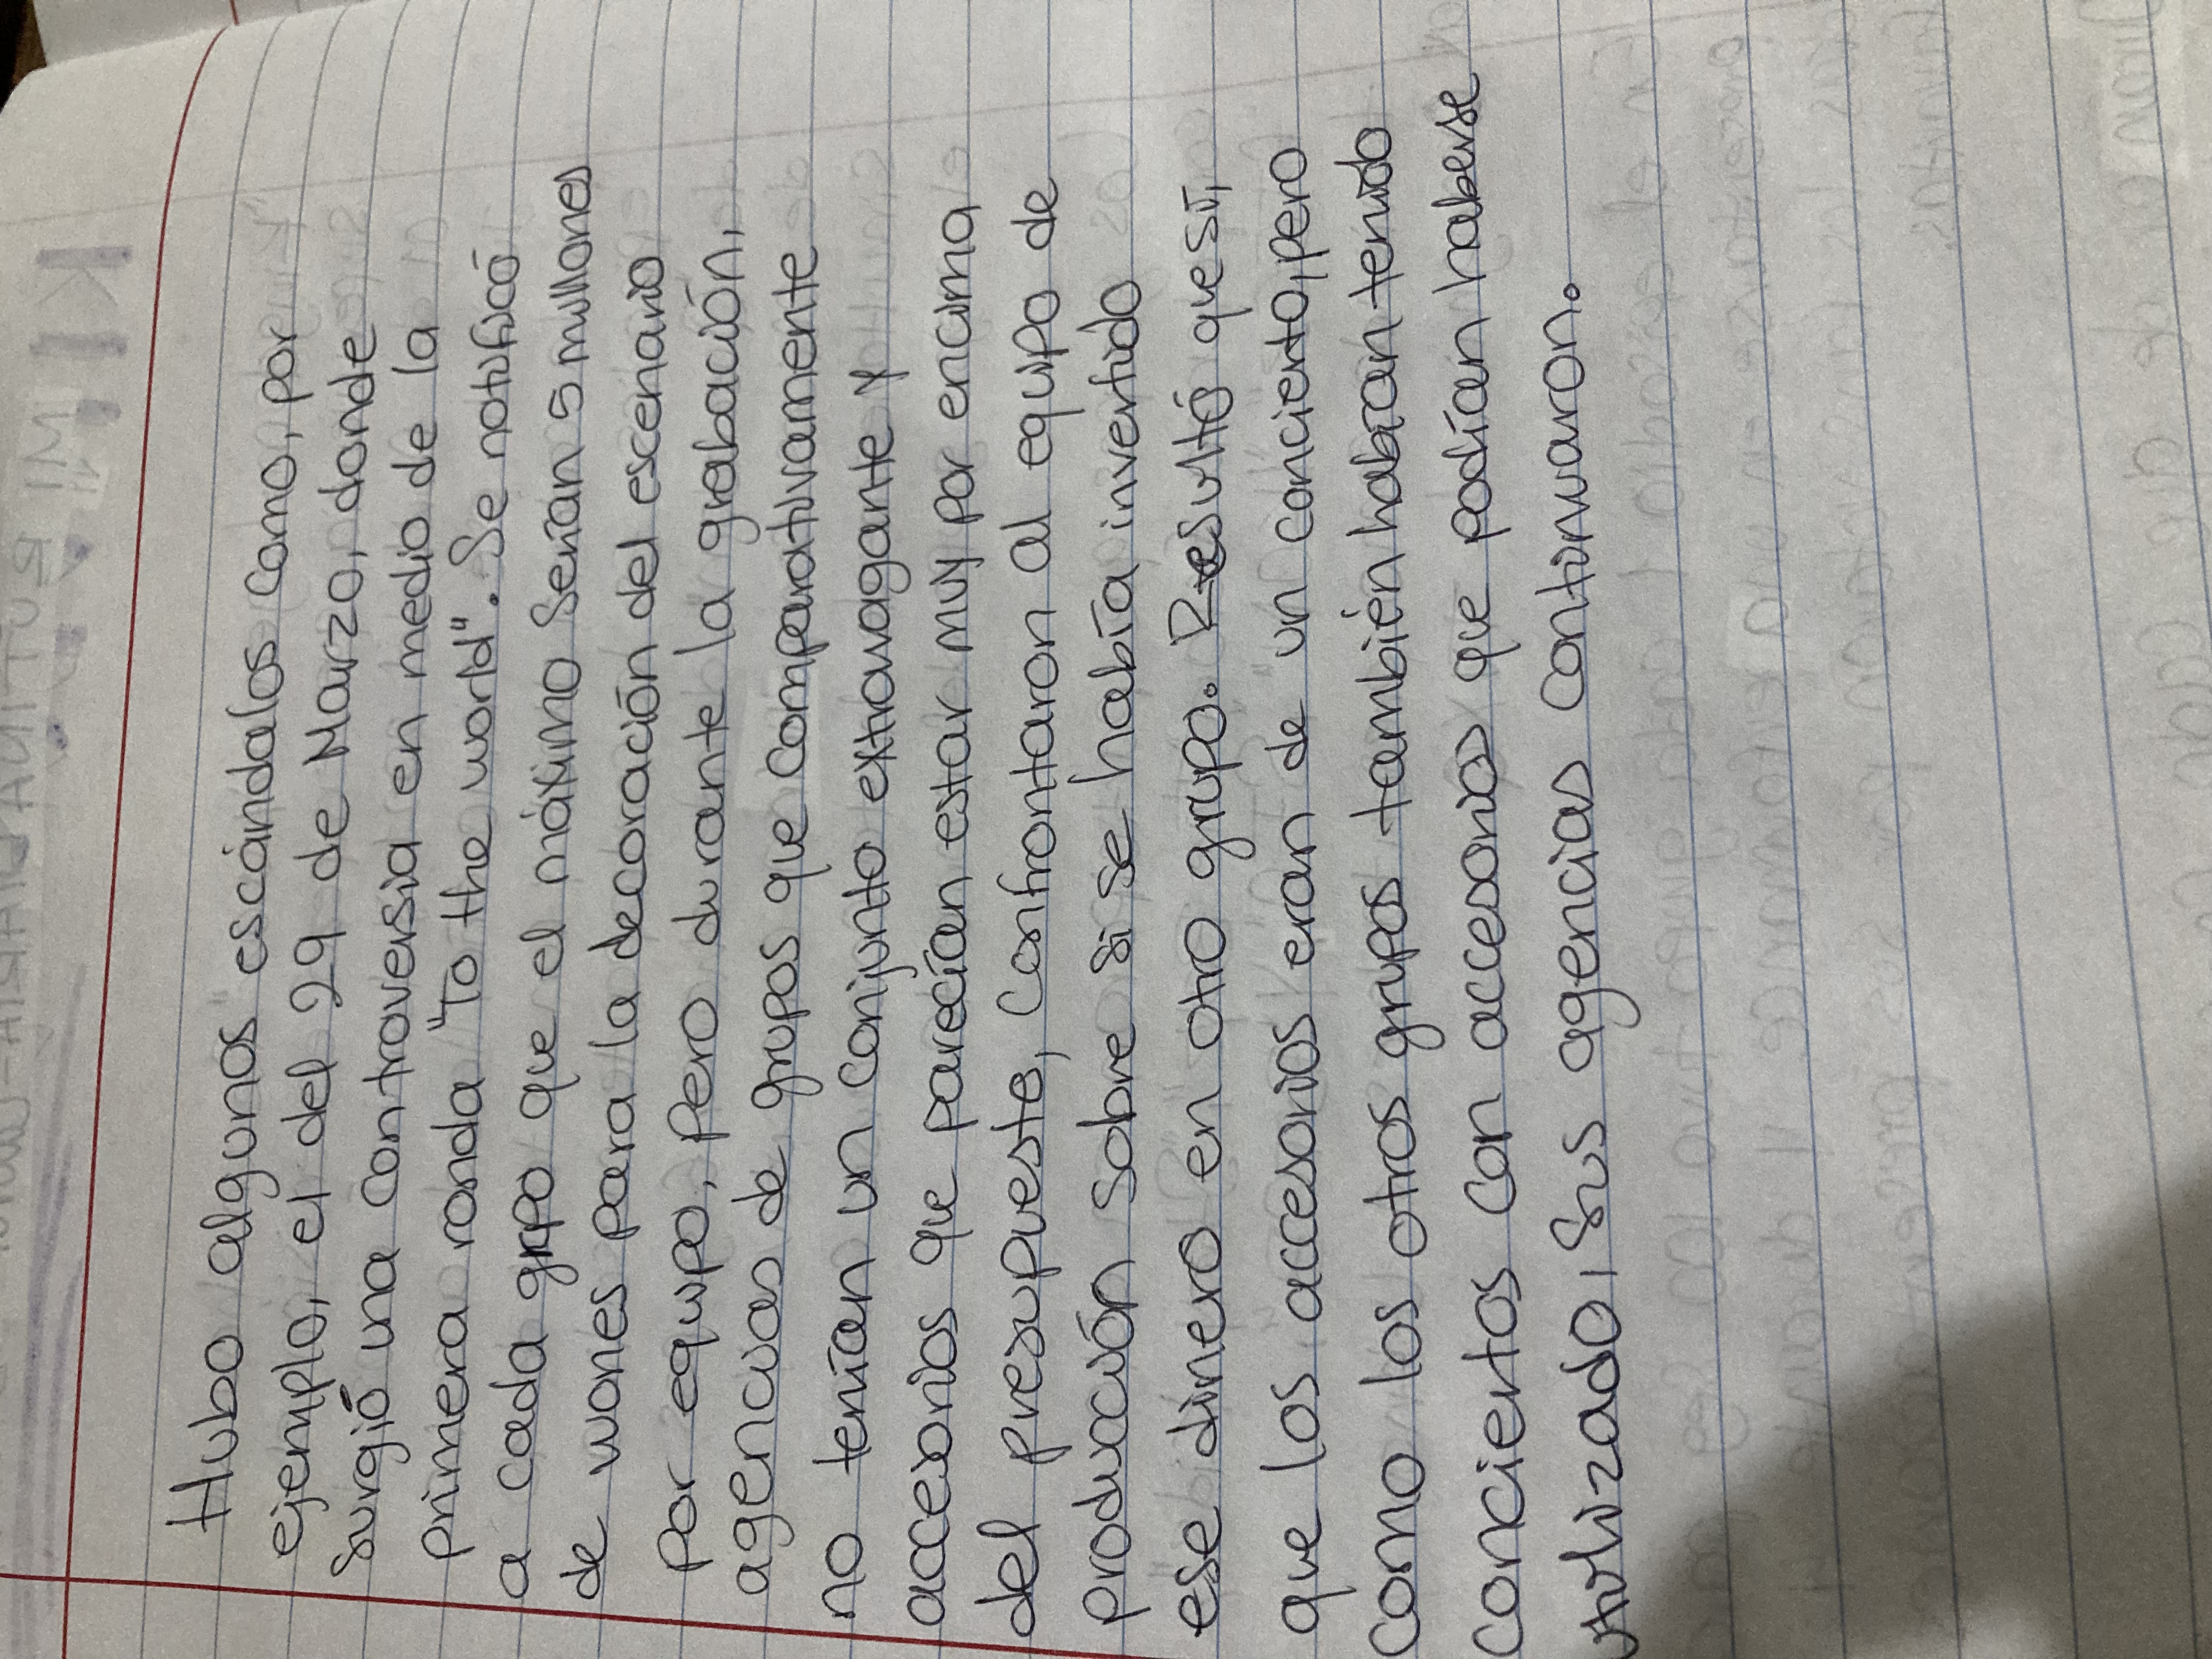 Hubo algunos escándalos como, por
ejemplo, el del 29 de Marzo, donde
surgió una controversia en medio de la
primera ronda "To the world". Se notificó
a cada grupo que el máximo serían 5 millones
de wones para la decoración del escenario
por equipo, pero durante la grabación,
agencias de grupos que comparativamente
no tenían un conjunto extravagante y
accesorios que parecían estar muy por encima
del presupueste, confrontaron al equipo de
producción sobre si se había invertido
ese dinero en otro grupo. Resultó que sí,
que los accesorios eran de un concierto, pero
como los otros grupos también habían tenido
conciertos con accesorios que podían haberse
utilizado, sus agencias continuaron.